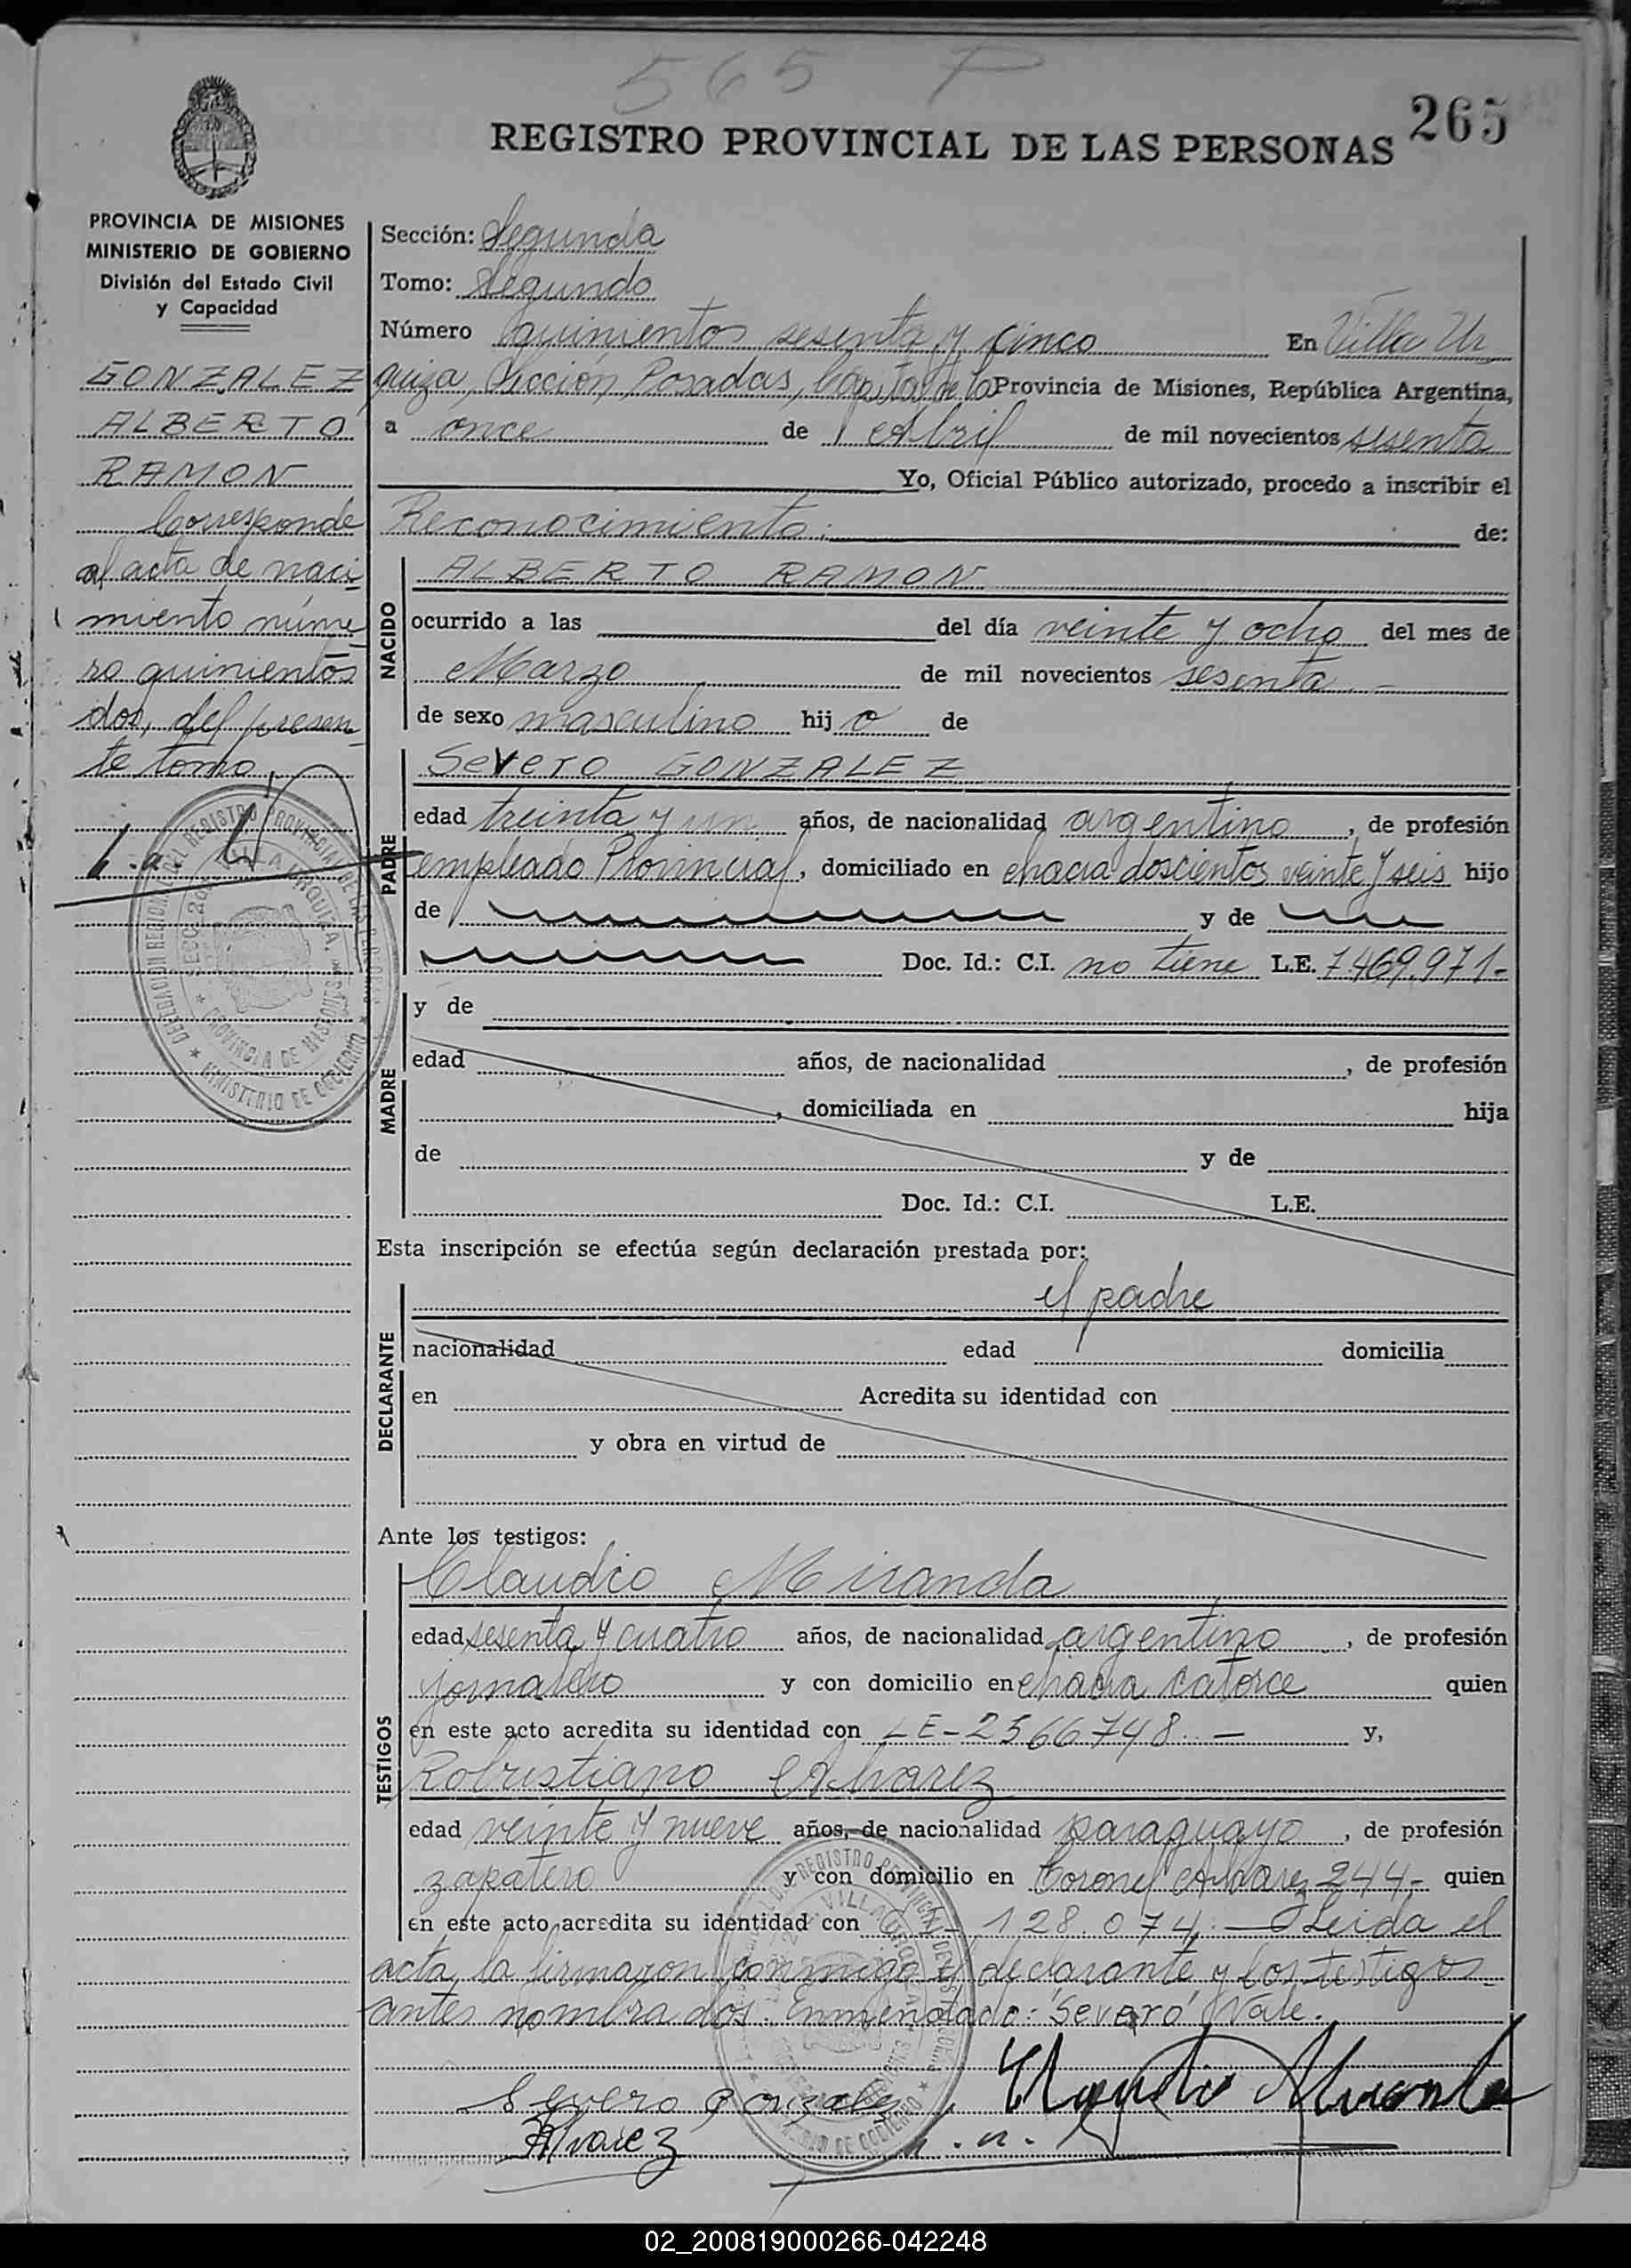 565 P
265
REGISTRO PROVINCIAL DE LAS PERSONAS
PROVINCIA DE MISIONES
MINISTERIO DE GOBIERNO
División del Estado Civil
y Capacidad
GONZALEZ
ALBERTO
RAMON
Corresponde
al acta de naci
miento núme
ro quinientos
dos, del presen
te tomo.
Sección: Segunda
Tomo: Segundo
Número quinientos sesenta y cinco En Villa Ur
quiza, Sección Posadas, Capital de la Provincia de Misiones, República Argentina,
a once de Abril de mil novecientos sesenta
Yo, Oficial Público autorizado, procedo a inscribir el
Reconocimiento: de:
NACIDO
ALBERTO RAMON
ocurrido a las del día veinte y ocho del mes de
Marzo de mil novecientos sesenta.-
de sexo masculino hijo de
PADRE
Severo GONZALEZ
edad treinta y un años, de nacionalidad argentino, de profesión
empleado Provincial, domiciliado en chacra doscientos veinte y seis hijo
de y de
Doc. Id.: C.I. no tiene L.E. 7469.971-
MADRE
y de
edad años, de nacionalidad , de profesión
, domiciliada en hija
de y de
Doc. Id.: C.I. L.E.
Esta inscripción se efectúa según declaración prestada por:
DECLARANTE
el padre
nacionalidad edad domicilia
en Acredita su identidad con
y obra en virtud de
Ante los testigos:
TESTIGOS
Claudio Miranda
edad sesenta y cuatro años, de nacionalidad argentino, de profesión
jornalero y con domicilio en chacra catorce quien
en este acto acredita su identidad con LE-2566748.- y,
Robustiano Alvarez
edad veinte y nueve años, de nacionalidad paraguayo, de profesión
zapatero y con domicilio en Coronel Alvarez 244,- quien
en este acto acredita su identidad con 128.074.- Leida el
acta, la firmaron conmigo el declarante y los testigos
antes nombrados. Enmendado: "Severo" Vale.
Severo Gonzalez
Claudio Miranda
Alvarez
DELEGACION REGIONAL DEL REGISTRO PROVINCIAL DE LAS PERSONAS
VILLA URQUIZA
PROVINCIA DE MISIONES
MINISTERIO DE GOBIERNO
02_200819000266-042248